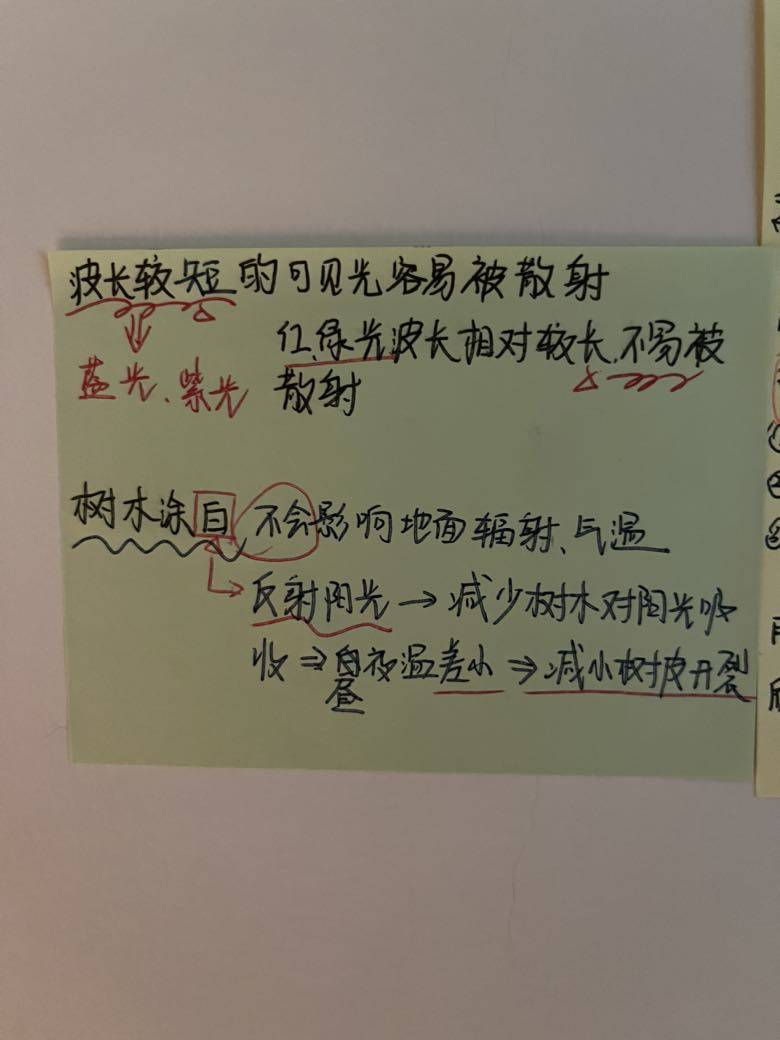 波长较短的可见光容易被散射
红、绿光波长相对较长,不易被
蓝光、紫光
散射
树木涂白 不会影响地面辐射、气温
反射阳光→减少树木对阳光吸
收⇒昼夜温差小⇒减小树皮开裂